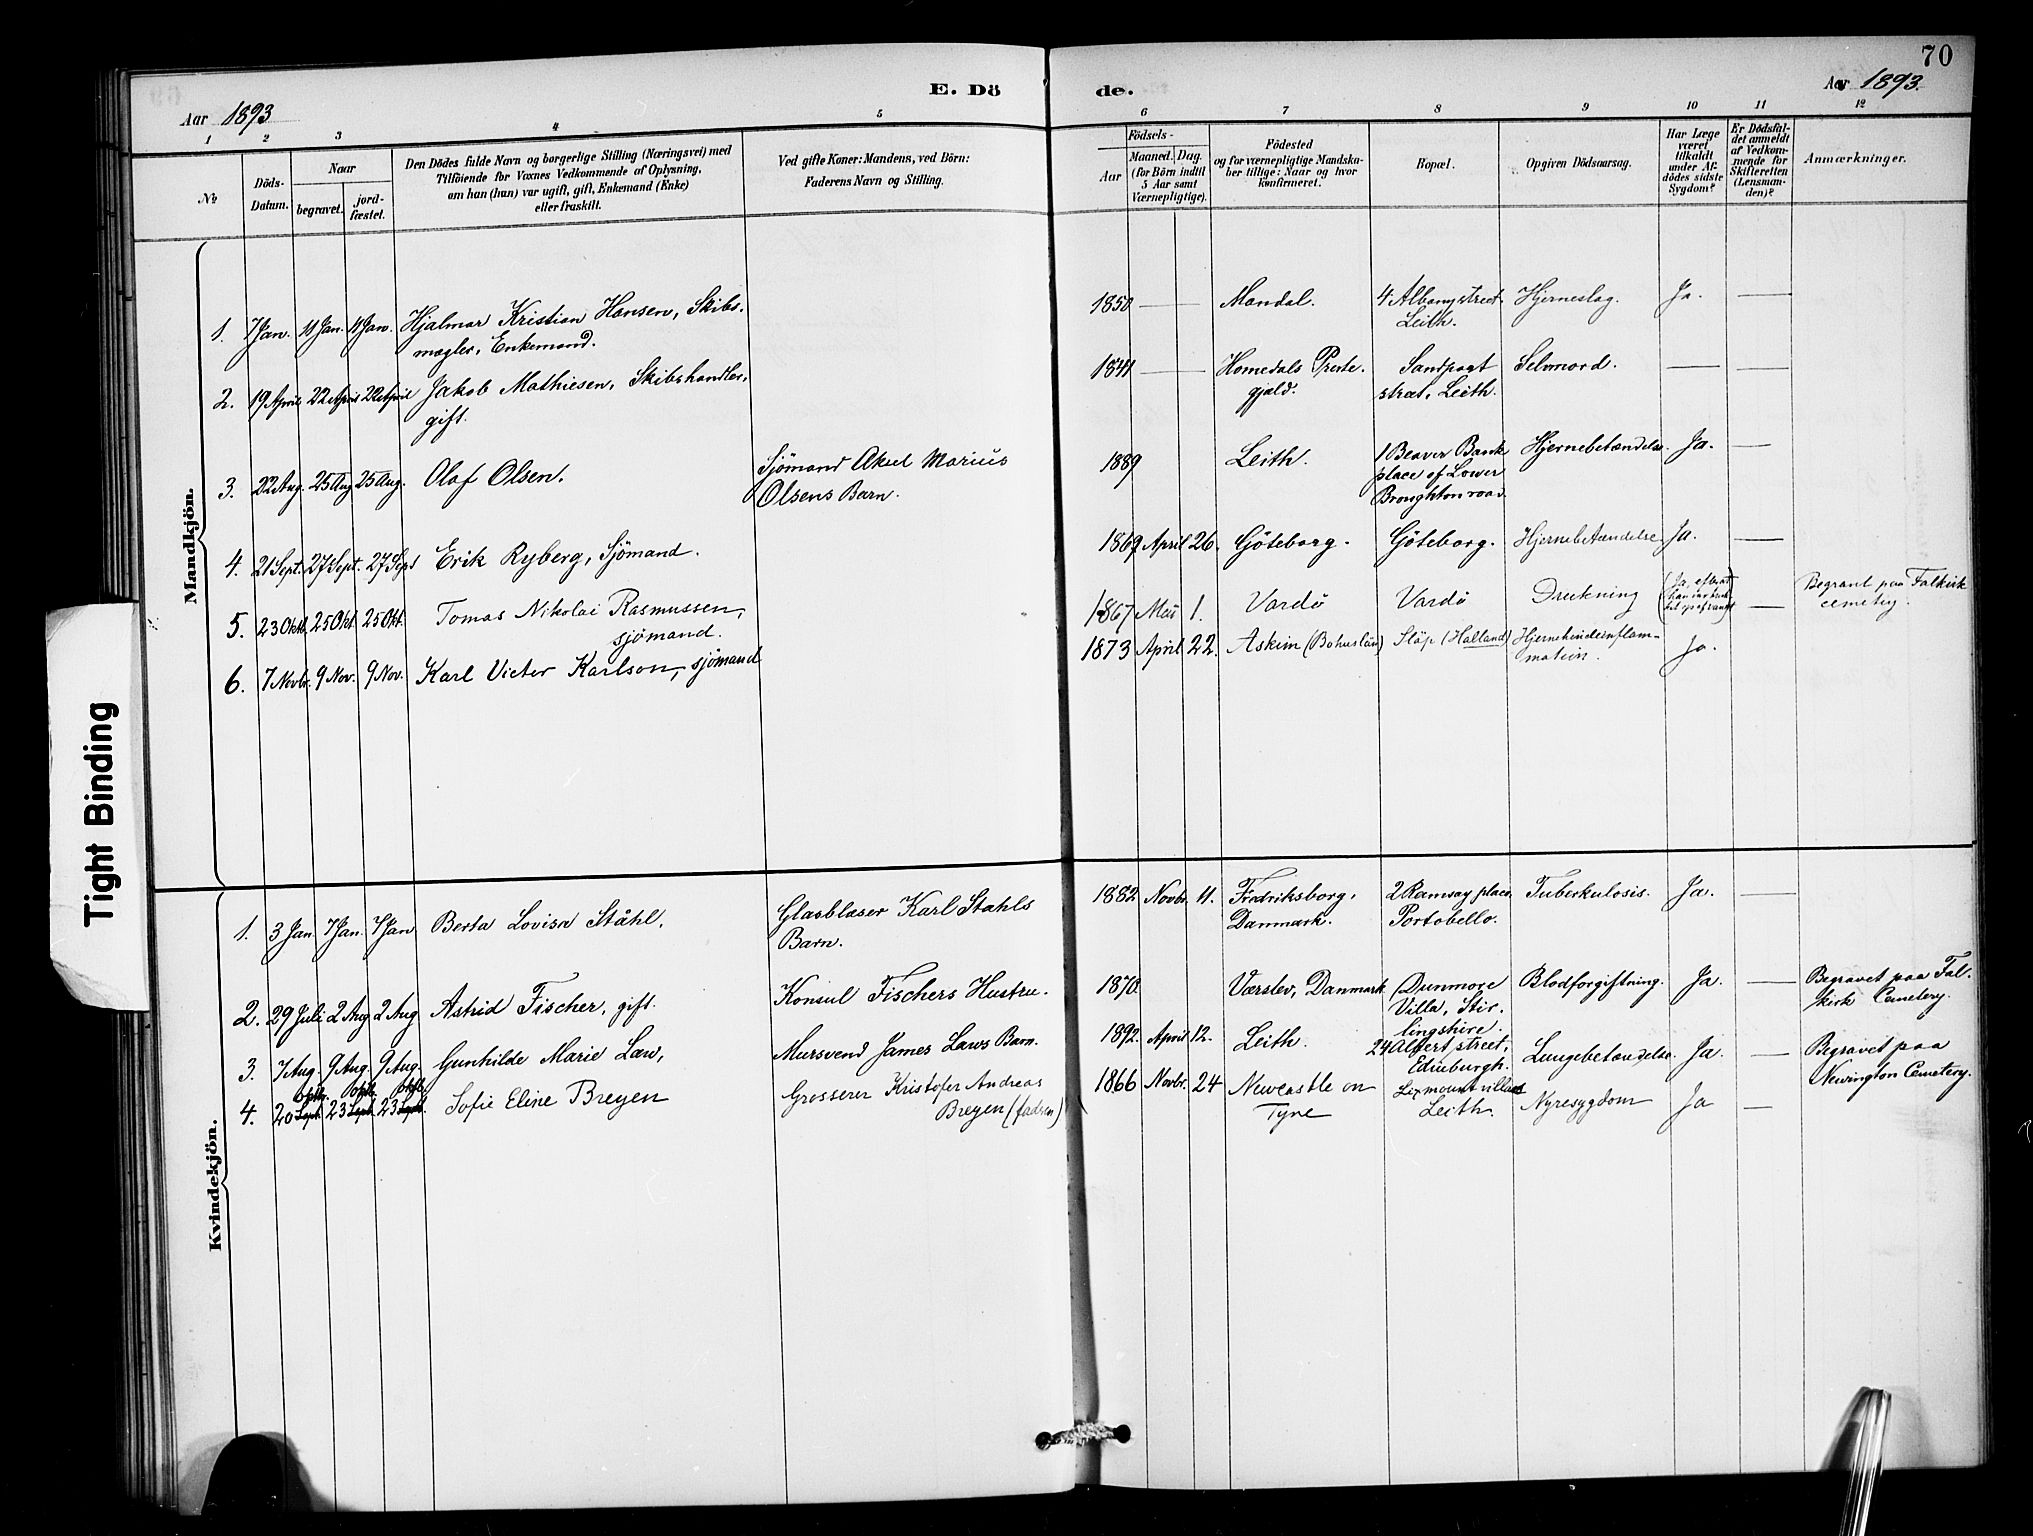 70
Aar 1893
E. Dö
de.
Aar 1893.
1 2 3 4 5
6 7 8 9 10 11 12
No
Döds-
Datum.
Naar
begravet.
jord-
fæstet.
Den Dödes fulde Navn og borgerlige Stilling (Næringsvei) med
Tilföiende for Voxnes Vedkommende af Oplysning,
om han (hun) var ugift, gift, Enkemand (Enke)
eller fraskilt.
Ved gifte Koner: Mandens, ved Börn:
Faderens Navn og Stilling.
Födsels-
Aar
Maaned. Dag.
(for Börn indtil
5 Aar samt
Værnepligtige).
Födested
og for værnepligtige Mandska-
ber tillige: Naar og hvor
konfirmeret.
Bopæl.
Opgiven Dödsaarsag.
Har Læge
været
tilkaldt
under Af-
dödes sidste
Sygdom?
Er Dödsfal-
det anmeldt
af Vedkom-
mende for
Skifteretten
(Lensman-
den)?
Anmærkninger.
Mandkjön.
1. 7 Jan. 11 Jan. 11 Jan. Hjalmar Kristian Hansen, Skibs-
mægler, Enkemand.
1850 — — Mandal. 4 Albany street Hjerneslag. Ja. —
Leith.
2. 19 April 22 April 22 April Jakob Mathiesen, Skibshandler,
gift.
1841 — Homedals Preste- Sandport Selvmord. — —
gjæld. stræt, Leith.
3. 22 Aug. 25 Aug 25 Aug. Olaf Olsen. Sjömand Axel Marius
Olsens Barn.
1889 Leith. 1 Beaver Bank Hjernebetændelse. Ja. —
place of Lower
Broughton road.
4. 21 Sept. 27 Sept. 27 Sept Erik Ryberg, Sjömand.
1869 April 26. Göteborg. Göteborg. Hjernebetændelse. Ja. —
5. 23 Oktb. 25 Okt. 25 Okt. Tomas Nikolai Rasmussen,
sjömand.
1867 Mai 1. Vardö Vardö Drukning (Ja, efterat
han var —
Begravt paa Falkirk
cemetery.
6. 7 Novbr. 9 Nov. 9 Nov. Karl Victor Karlson, sjömand
1873 April 22. Askim (Bohuslän) Släp (Halland) Hjernehindeinflam-
mation. Ja.
Kvindekjön.
1. 3 Jan. 7 Jan. 7 Jan Berta Lovisa Ståhl, Glasblæser Karl Stahls
Barn.
1882 Novbr. 11. Fredriksborg, 2 Ramsay place, Tuberkulosis. Ja. —
Danmark. Portobello.
2. 29 Juli 2 Aug 2 Aug Astrid Fischer, gift. Konsul Fischers Hustru.
1870. Værslev, Danmark (Dunmore Blodforgiftning. Ja. — Begravet paa Fal-
Villa, Stir- kirk Cemetery.
lingshire.
3. 7 Aug. 9 Aug. 9 Aug. Gunhilde Marie Law, Mursvend James Laws Barn.
1892. April 12. Leith. 24 Albert street, Lungebetændelse Ja. — Begravet paa
Edinburgh. Newington Cemetery.
4. 20 Sept. 23 Sept. 23 Sept. Sofie Eline Breyen Grosserer Kristofer Andreas
oktb. oktb. oktb.
Breyen (fadren)
1866 Novbr. 24 Newcastle on Lixmount villas Nyresygdom Ja —
Tyne Leith.
Tight Binding